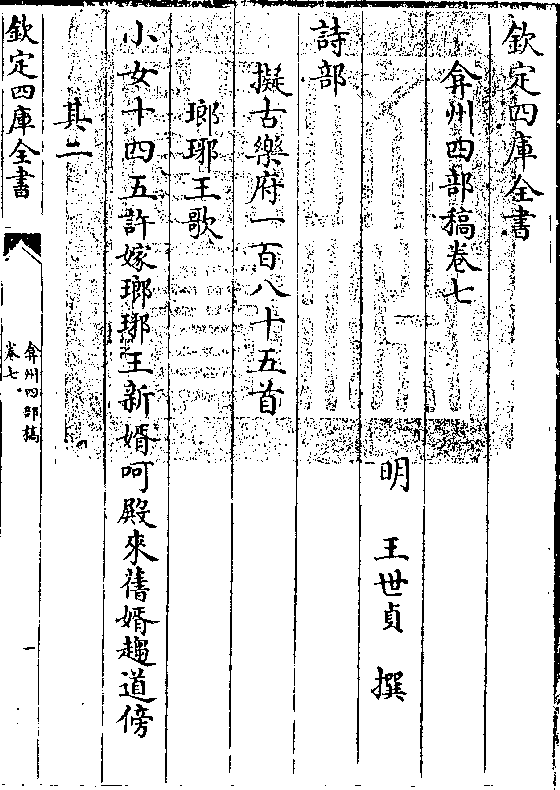 欽定四庫全書
弇州四部稿卷七
明　王世貞　撰
詩部
擬古樂府一百八十五首
瑯琊王歌
小女十四五許嫁瑯琊王新婿呵殿來舊婿趨道傍
其二
欽定四庫全書
弇州四部稿
卷七
一